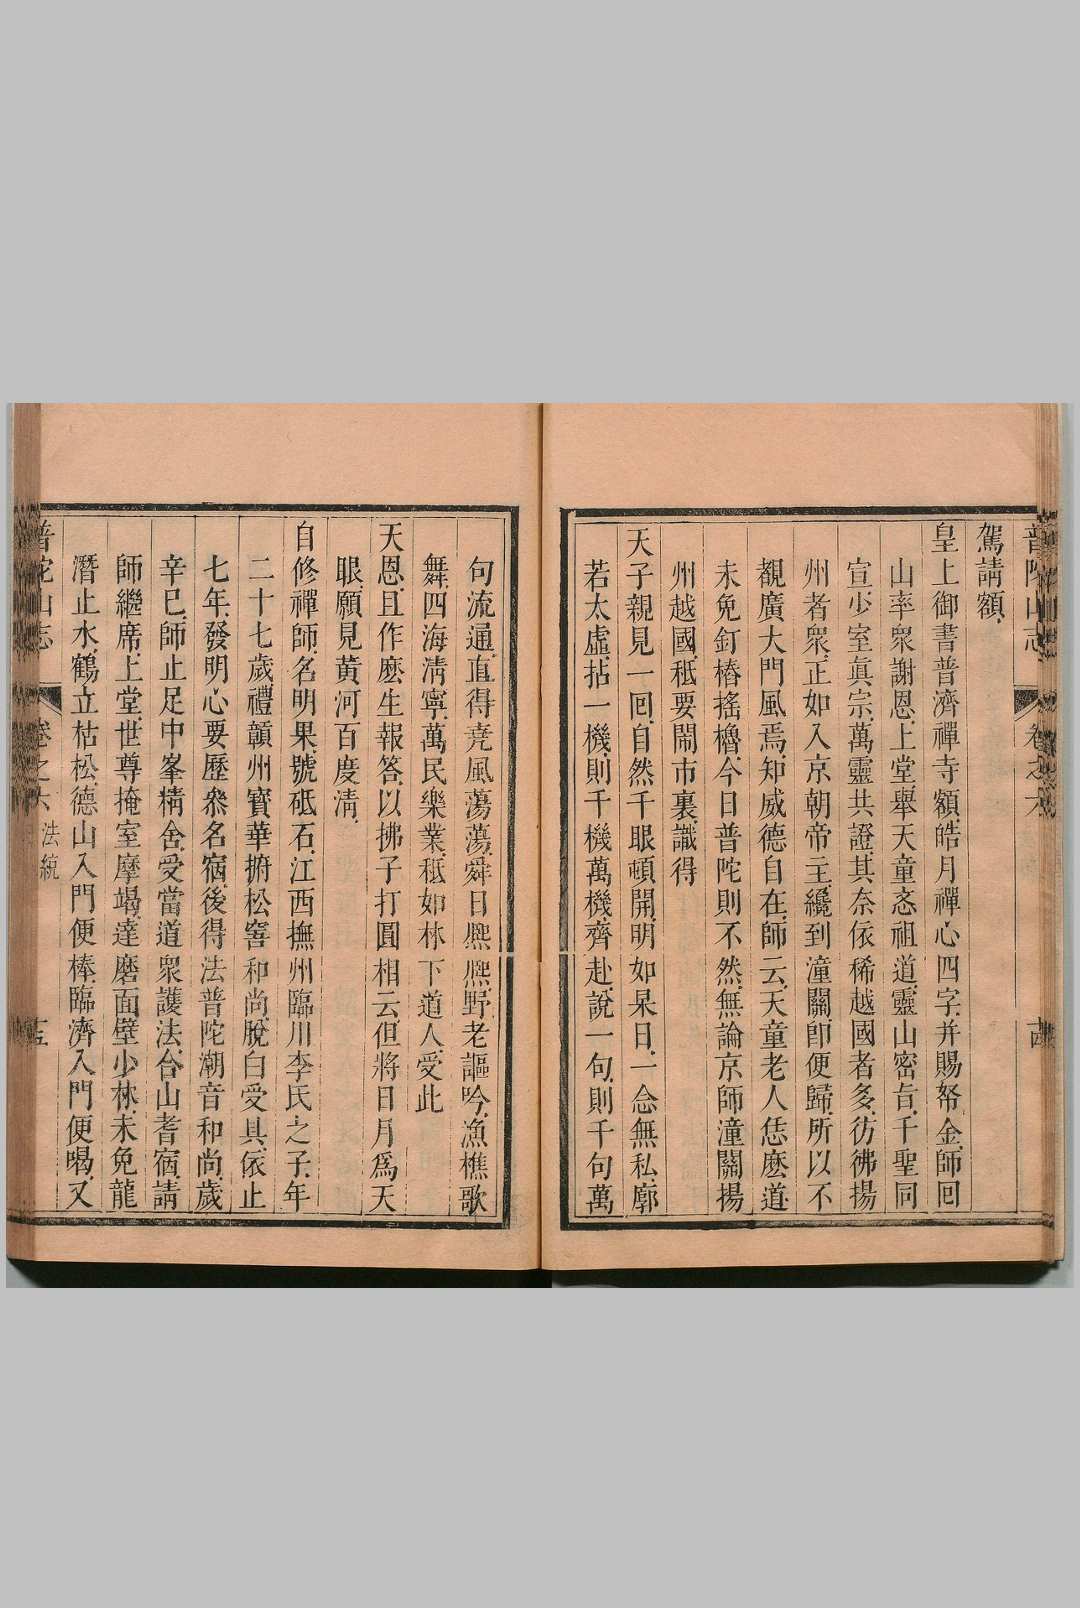 普陀山志 卷之六 古
駕請額
皇上御書普濟禪寺額皓月禪心四字并賜帑金師回
山率衆謝恩上堂舉天童忞祖道靈山密旨千聖同
宣少室真宗萬靈共證其奈依稀越國者多彷彿揚
州者衆正如入京朝帝主纔到潼關即便歸所以不
覩廣大門風焉知威德自在師云天童老人恁麼道
未免釘樁搖櫓今日普陀則不然無論京師潼關揚
州越國秪要鬧市裏識得
天子親見一回自然千眼頓開明如杲日一念無私廓
若太虛拈一機則千機萬機齊赴說一句則千句萬
句流通直得堯風蕩蕩舜日熈熈野老謳吟漁樵歌
舞四海淸寧萬民樂業秪如林下道人受此
天恩且作麽生報答以拂子打圓相云但將日月爲天
眼願見黃河百度淸
自修禪師名明果號砥石江西撫州臨川李氏之子年
二十七歲禮贛州寶華搊松窖和尚脫白受具依止
七年發明心要歷叅名宿後得法普陀潮音和尚歲
辛巳師止足中峯精舍受當道衆護法合山耆宿請
師繼席上堂世尊掩室摩竭達磨面壁少林未免龍
潛止水鶴立枯松德山入門便棒臨濟入門便喝又
普陀山志 卷之六 法統 十五